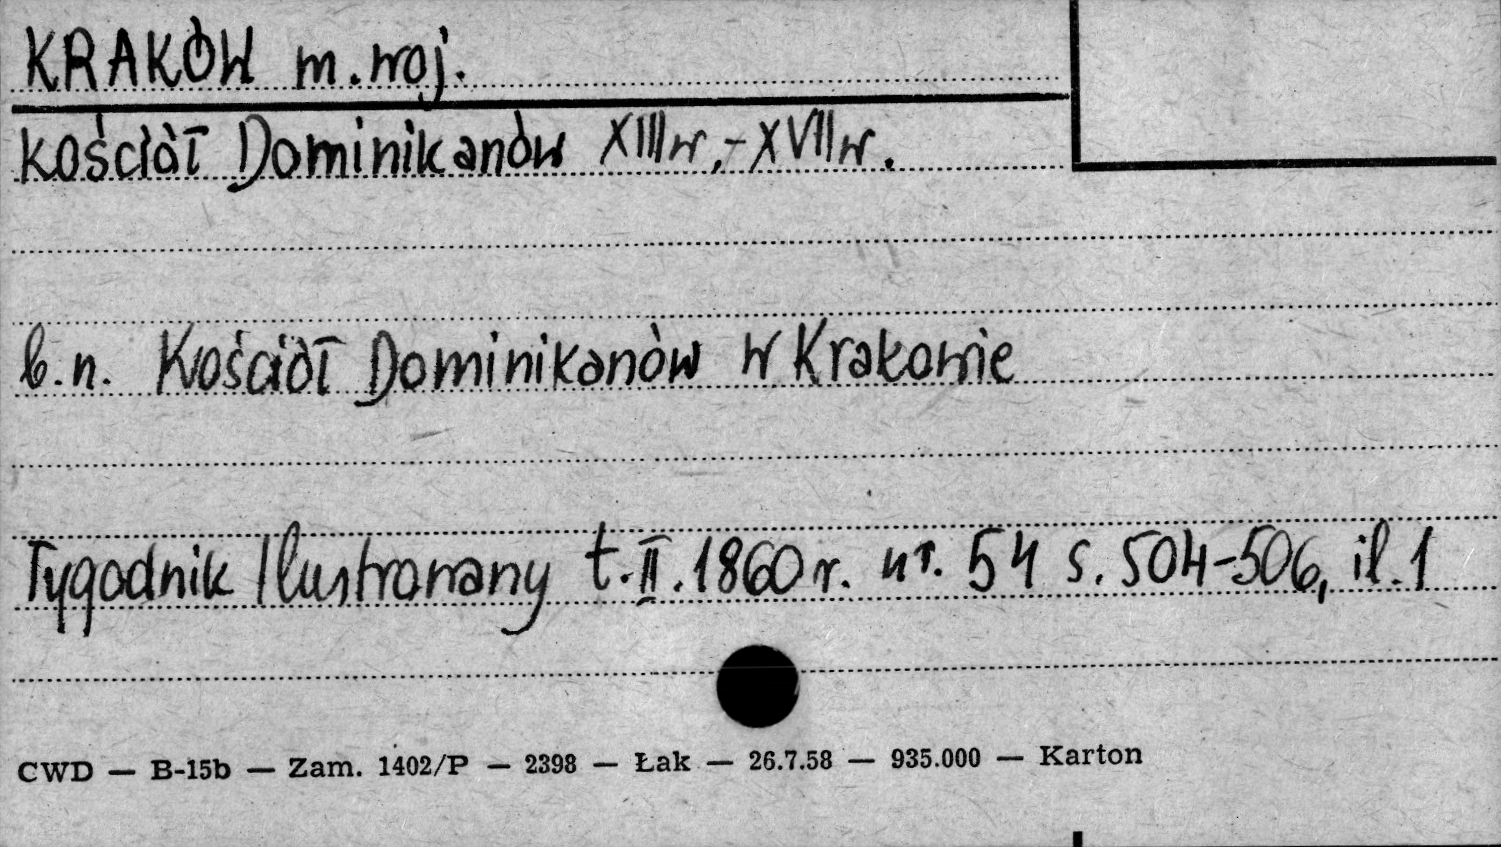 KRAKÓW m. woj.
Kościół Dominikanów XIII w.-XVII w.
b.n. Kościół Dominikanów w Krakowie
Tygodnik Ilustrowany t. II. 1860 r. nr. 54 s. 504-506, il. 1
CWD — B-15b — Zam. 1402/P — 2398 — Łak — 26.7.58 — 935.000 — Karton